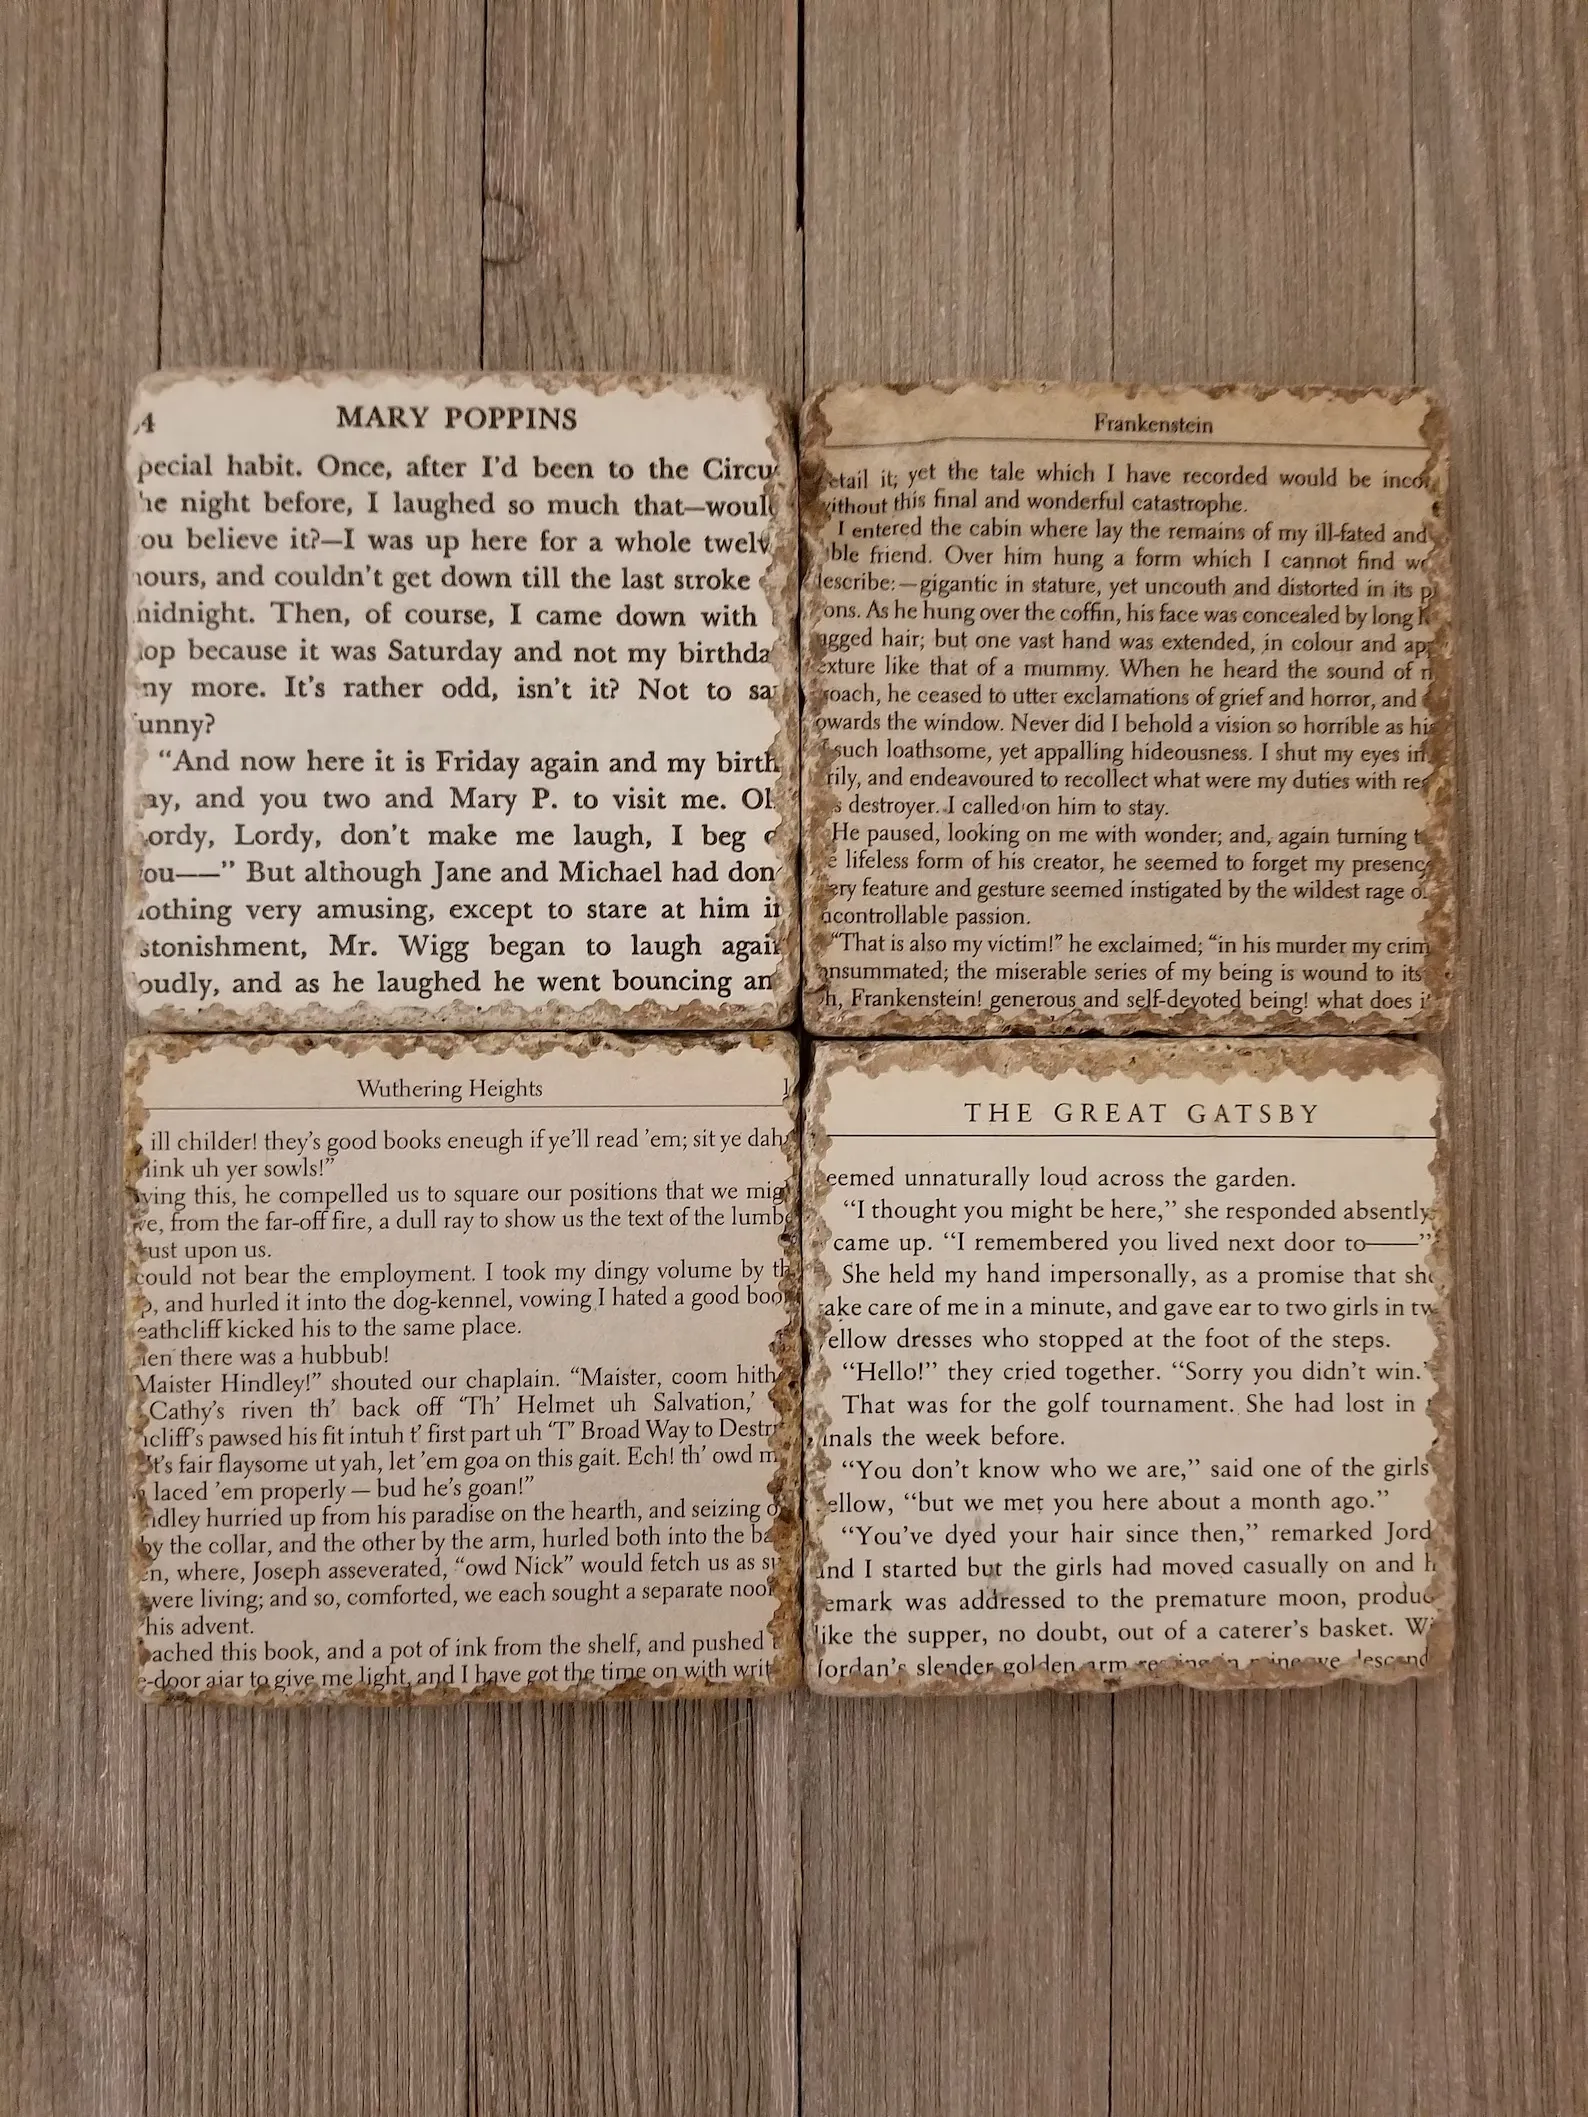 4
MARY POPPINS
pecial habit. Once, after I'd been to the Circu
he night before, I laughed so much that—woul
ou believe it?—I was up here for a whole twelv
ours, and couldn't get down till the last stroke
nidnight. Then, of course, I came down with
op because it was Saturday and not my birthda
ny more. It's rather odd, isn't it? Not to sa
unny?
“And now here it is Friday again and my birth
ay, and you two and Mary P. to visit me. Oh
ordy, Lordy, don't make me laugh, I beg o
ou——” But although Jane and Michael had don
othing very amusing, except to stare at him in
stonishment, Mr. Wigg began to laugh again
oudly, and as he laughed he went bouncing an
Frankenstein
etail it; yet the tale which I have recorded would be inco
ithout this final and wonderful catastrophe.
I entered the cabin where lay the remains of my ill-fated and
ble friend. Over him hung a form which I cannot find wo
describe:—gigantic in stature, yet uncouth and distorted in its p
ons. As he hung over the coffin, his face was concealed by long
agged hair; but one vast hand was extended, in colour and app
exture like that of a mummy. When he heard the sound of
roach, he ceased to utter exclamations of grief and horror, and
owards the window. Never did I behold a vision so horrible as his
such loathsome, yet appalling hideousness. I shut my eyes in
rily, and endeavoured to recollect what were my duties with reg
s destroyer. I called on him to stay.
He paused, looking on me with wonder; and, again turning t
e lifeless form of his creator, he seemed to forget my presenc
ery feature and gesture seemed instigated by the wildest rage o
ncontrollable passion.
“That is also my victim!” he exclaimed; “in his murder my crim
onsummated; the miserable series of my being is wound to its
h, Frankenstein! generous and self-devoted being! what does i
Wuthering Heights
ill childer! they's good books eneugh if ye'll read 'em; sit ye dah
hink uh yer sowls!”
ying this, he compelled us to square our positions that we mig
ve, from the far-off fire, a dull ray to show us the text of the lumb
ust upon us.
could not bear the employment. I took my dingy volume by th
p, and hurled it into the dog-kennel, vowing I hated a good boo
eathcliff kicked his to the same place.
hen there was a hubbub!
Maister Hindley!” shouted our chaplain. “Maister, coom hith
Cathy's riven th' back off ‘Th' Helmet uh Salvation,’
hcliff's pawsed his fit intuh t' first part uh ‘T' Broad Way to Destr
It's fair flaysome ut yah, let 'em goa on this gait. Ech! th' owd m
laced 'em properly — bud he's goan!”
ndley hurried up from his paradise on the hearth, and seizing o
by the collar, and the other by the arm, hurled both into the ba
n, where, Joseph asseverated, “owd Nick” would fetch us as su
were living; and so, comforted, we each sought a separate nook
his advent.
eached this book, and a pot of ink from the shelf, and pushed
e-door ajar to give me light, and I have got the time on with writ
THE GREAT GATSBY
eemed unnaturally loud across the garden.
“I thought you might be here,” she responded absently
came up. “I remembered you lived next door to——”
She held my hand impersonally, as a promise that she
ake care of me in a minute, and gave ear to two girls in tw
ellow dresses who stopped at the foot of the steps.
“Hello!” they cried together. “Sorry you didn't win.”
That was for the golf tournament. She had lost in
inals the week before.
“You don't know who we are,” said one of the girls
ellow, “but we met you here about a month ago.”
“You've dyed your hair since then,” remarked Jord
and I started but the girls had moved casually on and h
emark was addressed to the premature moon, produc
like the supper, no doubt, out of a caterer's basket. Wi
Jordan's slender golden arm resting in mine we descend